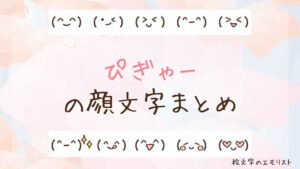 (^‿^) (•ᴗ<) (>ᴗ<) (^-^) (>▽<)
ぴぎゃー
の顔文字まとめ
(^-^)✨ (^ᴗ^) (^▽^) (◡ᴗ◡) (♡ᴗ♡)
絵文字のエモリスト